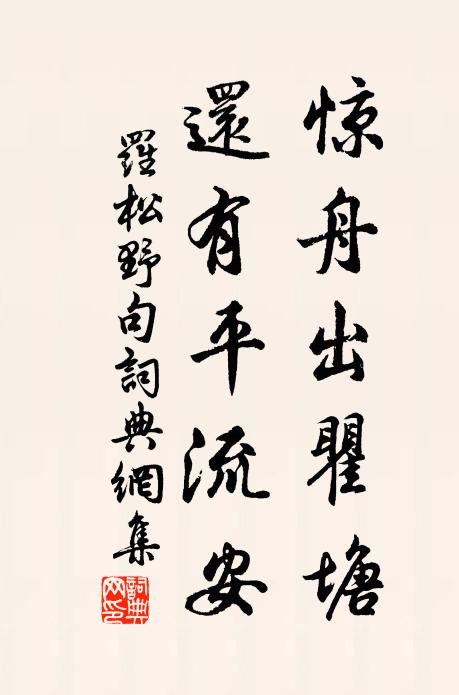 惊舟出瞿塘
還有平流安
羅松野句詞典網集
詞典
网印